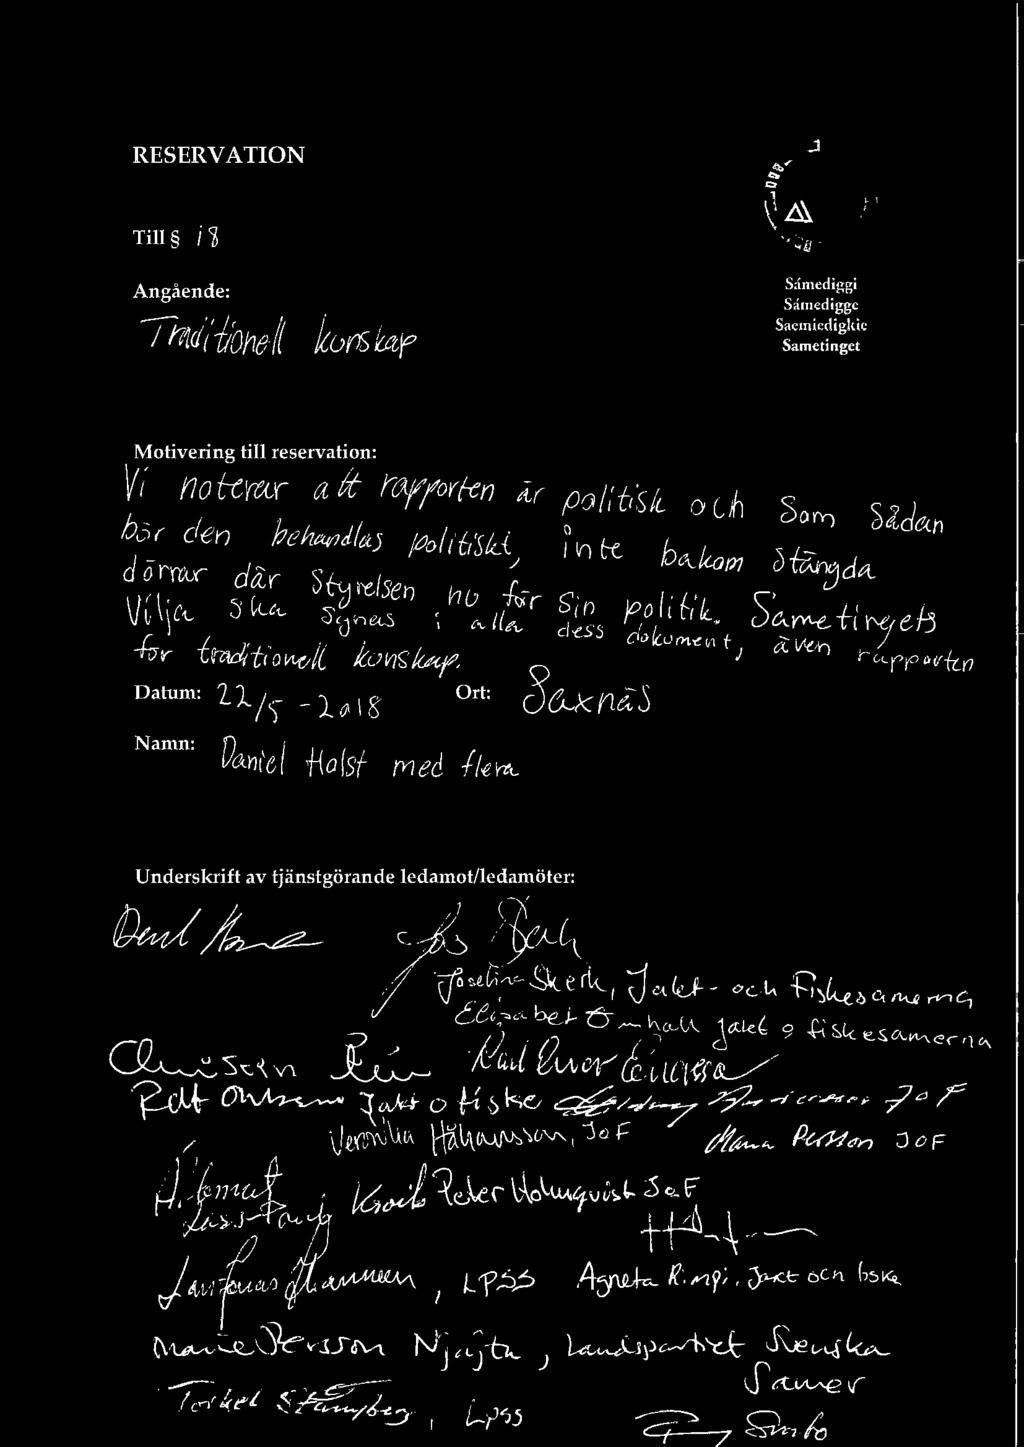 RESERVATION
Till § 18
Angående:
Traditionell kunskap
Sámediggi
Sámedigge
Saemiedigkie
Sametinget
Motivering till reservation:
Vi noterar att rapporten är politisk och som sådan
bör den behandlas politiskt, inte bakom stängda
dörrar där styrelsen nu för sin politik. Sametingets
Vilja ska synas i alla dess dokument, även rapporten
för traditionell kunskap.
Datum: 22/5 - 2018 Ort: Saxnäs
Namn: Daniel Holst med flera
Underskrift av tjänstgörande ledamot/ledamöter:
Josefina Skerk, Jakt- och Fiskesamerna
Elisabet Omhall Jakt o fiskesamerna
Karl Einar
Jakt o fiske JoF
Veronika Håkansson, JoF Maria Persson JoF
Peter Holmqvist JoF
, LPSS Agneta Rimpi, Jakt och fiske
Marie Persson Njajta, Landspartiet Svenska
Samer
Torkel Stångberg, LPSS